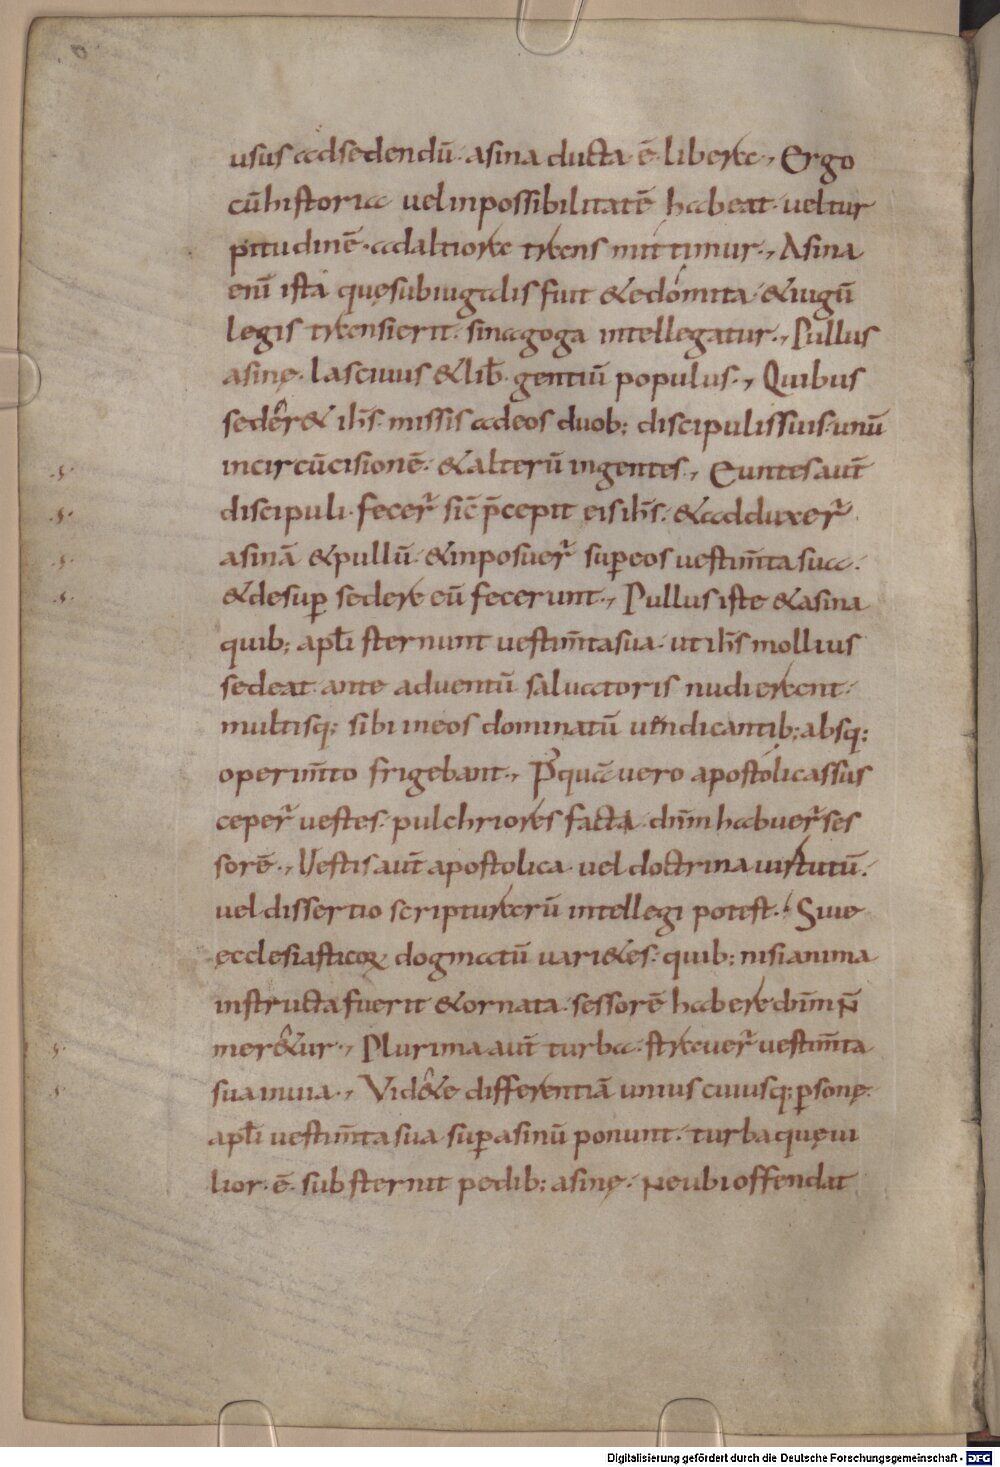 usus adsedendū· asina ducta· ē· libera·, Ergo
cūhistoria uelinpossibilitatē habeat· ueltur
pitudinē· adaltiora trans mittimur·, Asina
enī ista quęsubiugalis fuit &edomita· &iugū
legis transierit· sinagoga intellegatur·, Pullus
asinę· lasciuus &lib̄· gentiū populus·, Quibus
seder̂& ih̄s· missis adeos duob; discipulissuis· unū
incircūcisionē· &alterū ingentes·, Euntesaut̄
discipuli· fecer̄ sic̄ p̄cepit eisih̄s· &adduxer̄
asinā &pullū· &inposuer̄ sup̱eos uestim̄tasua·
&desup̱ sedere eū fecerunt·, Pullusiste &asina
quib; apl̄i sternunt uestim̄tasua· ut ih̄s mollius
sedeat· ante aduentū saluatoris nudierant·
multisq; sibi ineos dominatū uendicantib; absq;
operim̄to frigebant·, P̓quā uero apostolicassus
ceper̄ uestes· pulchriores facta· dnm̄ habuer̄ ses
sorē·, Uestisaut̄ apostolica· uel doctrina uirtutū·
uel dissertio scripturarū intellegi potest· Siue
ęcclesiasticoꝝ dogmatū uari&es· quib; nisianima
instructafuerit &ornata· sessorē habere dnm̄ N̄
mer&̂ur·, Plurima aut̄ turba· strauer̄ uestim̄ta
sua inuia·, Vid&̂e differentiā unius cuiusq; p̱sonę·
apl̄i uestim̄tasua sup̱asinū ponunt· turbaquęui
lior· ē· substernit pedib; asinę· Neubi offendat
Digitalisierung gefördert durch die Deutsche Forschungsgemeinschaft - DFG